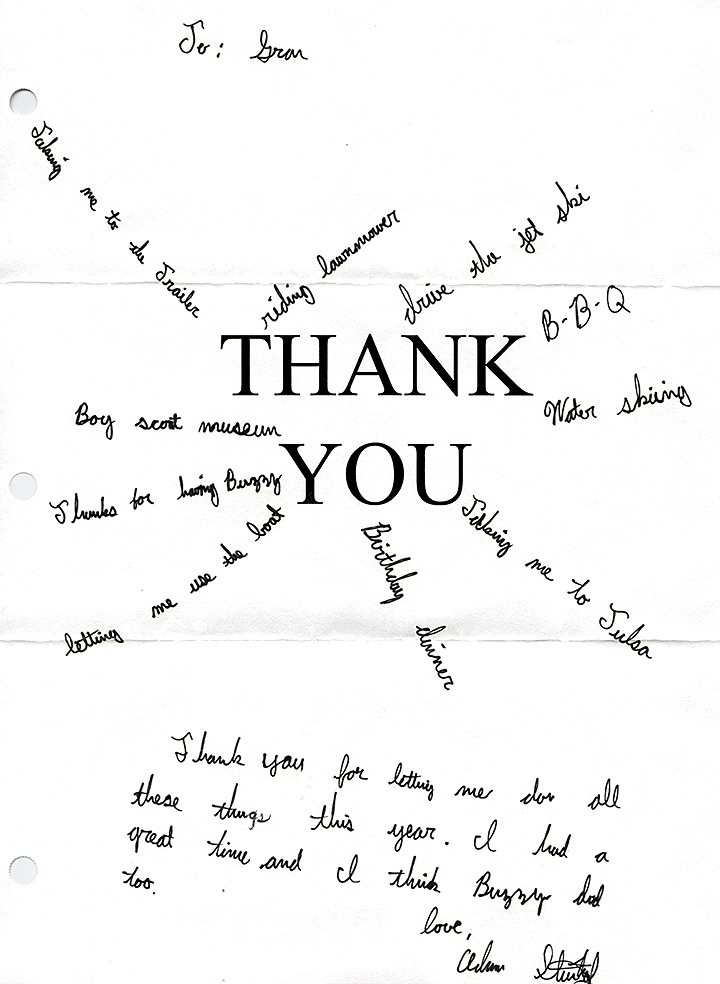 To: Gran
Taking me to the Trailer
riding lawnmower
drive the jet ski
B-B-Q
THANK
Water skiing
Boy scout museum
YOU
Thanks for having Buzzy
letting me use the boat
Birthday dinner
Taking me to Tulsa
Thank you for letting me do all
these things this year. I had a
great time and I think Buzzy did
too.
love,
Adam